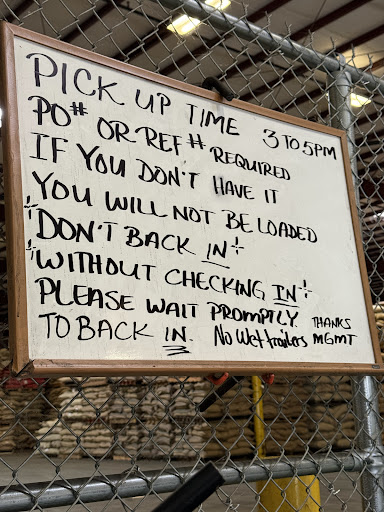 PICK UP TIME 3 TO 5PM
PO# OR REF # REQUIRED
IF YOU DON'T HAVE IT
YOU WILL NOT BE LOADED
DON'T BACK IN
WITHOUT CHECKING IN
PLEASE WAIT PROMPTLY. THANKS
TO BACK IN. No Wet trailers MGMT